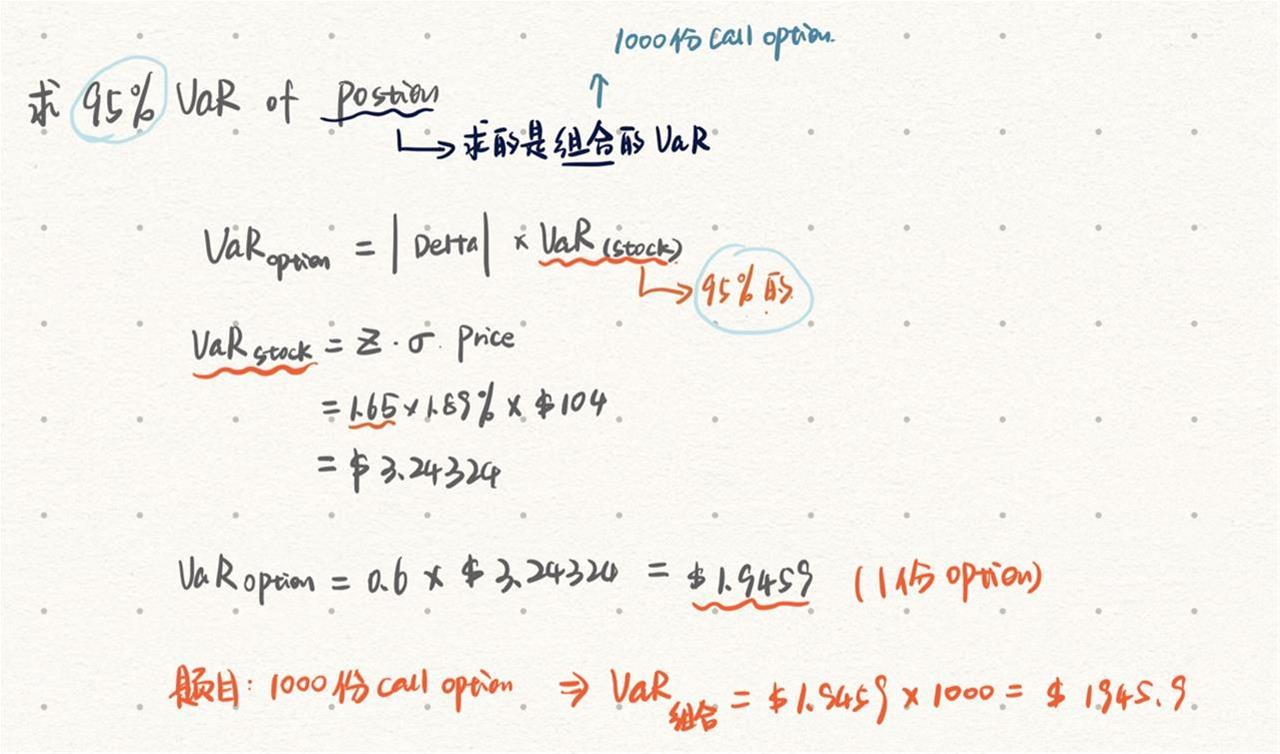 1000份 call option.
求 95% VaR of postion
求的是组合的 VaR
VaR option = | Delta | × VaR (stock)
95%的
VaR stock = Z · σ · price
= 1.65 × 1.89% × $104
= $ 3.24324
VaR option = 0.6 × $ 3.24324 = $1.9459 (1份 option)
题目: 1000份 call option ⇒ VaR 组合 = $1.9459 × 1000 = $ 1945.9